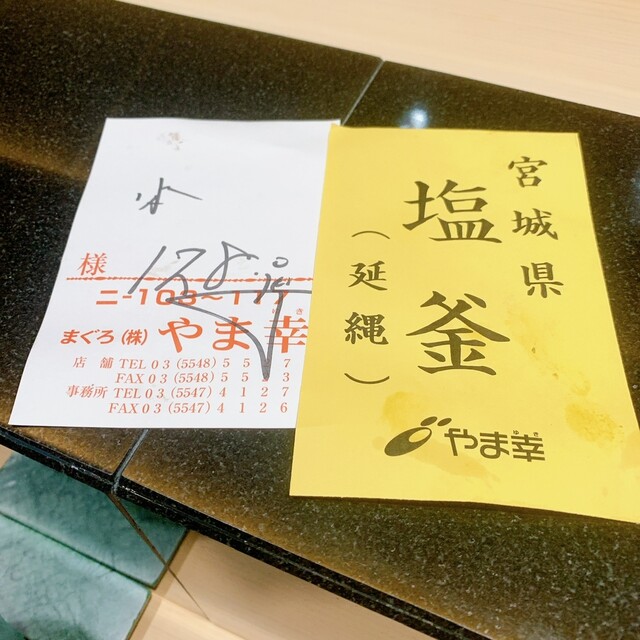 様
まぐろ(株) やま幸
店舗 TEL03(5548)
FAX03(5548)
事務所 TEL03(5547)4127
FAX03(5547)4126
宮城県
塩釜
(延縄)
やま幸
ゆき